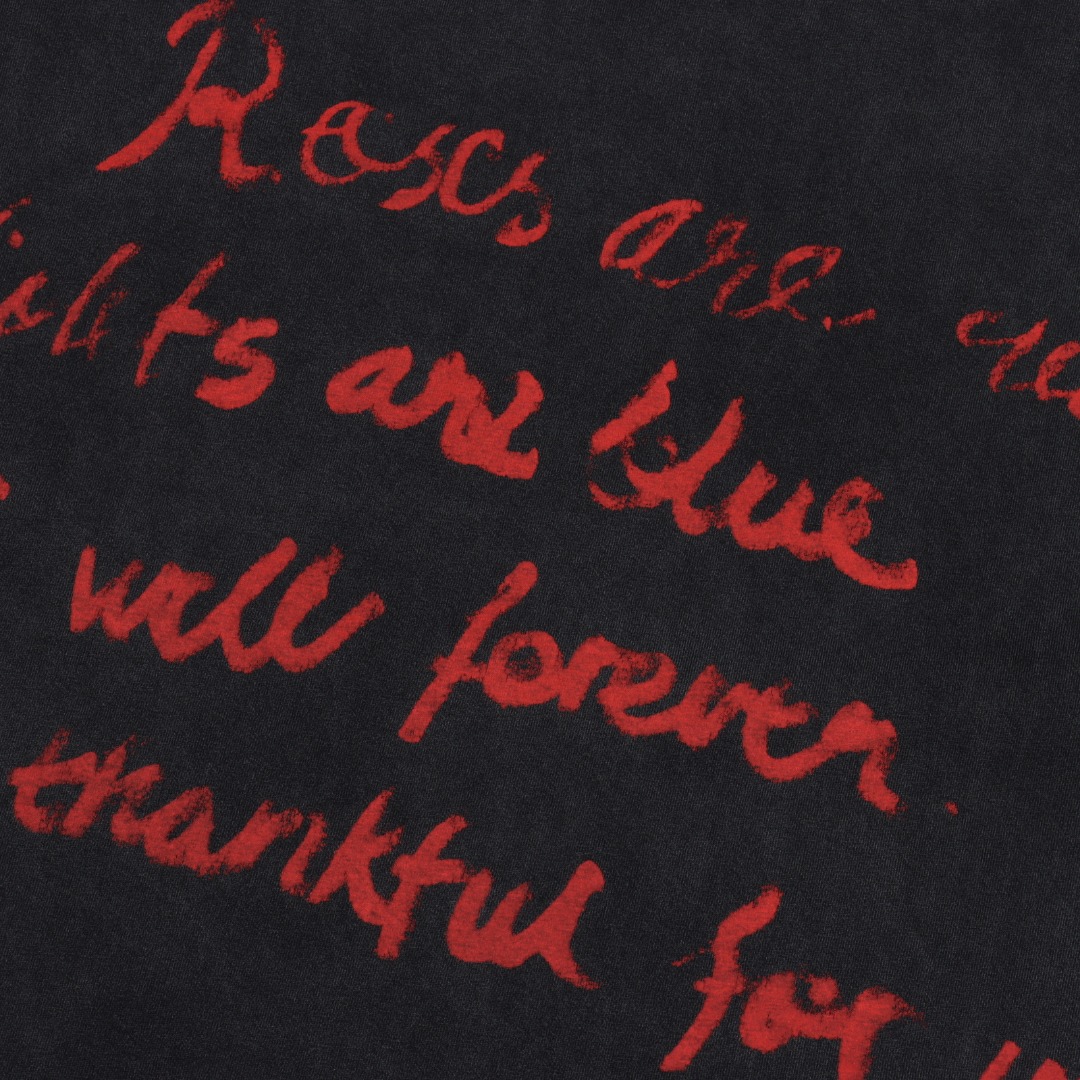 Roses are re
ights are blue
will forever
thankful for